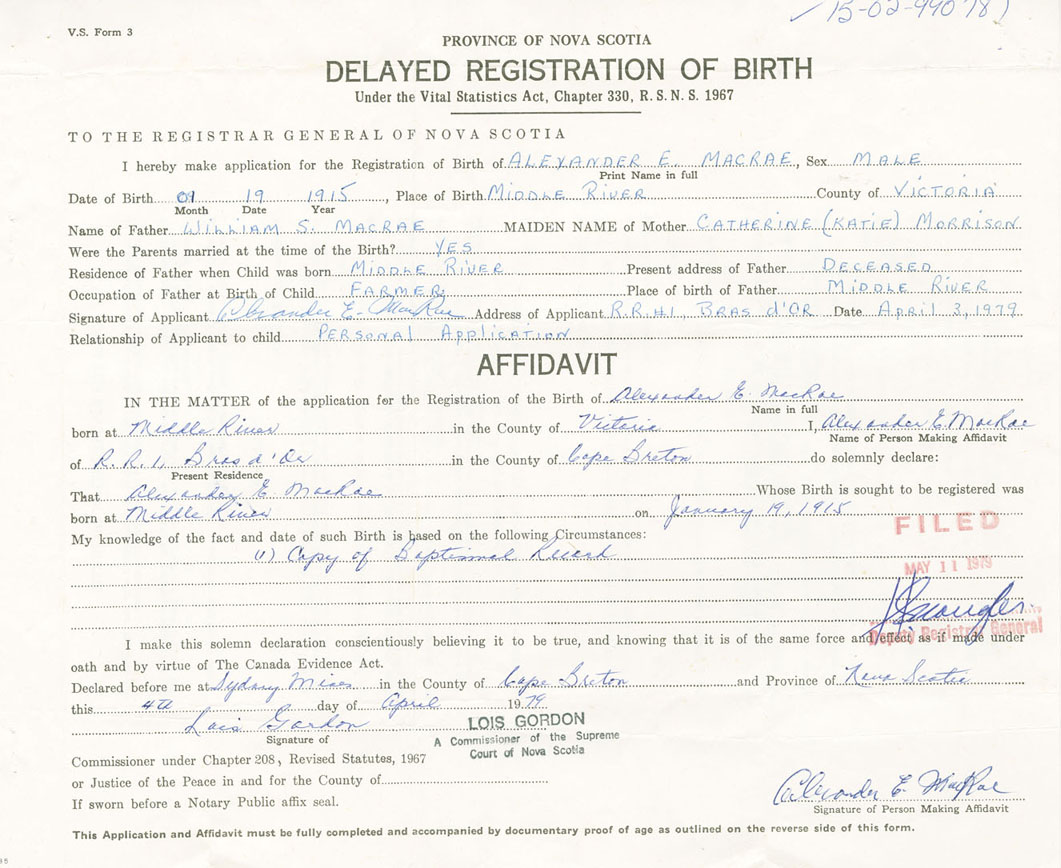 15-02-990781
V.S. Form 3
PROVINCE OF NOVA SCOTIA
DELAYED REGISTRATION OF BIRTH
Under the Vital Statistics Act, Chapter 330, R.S.N.S. 1967
TO THE REGISTRAR GENERAL OF NOVA SCOTIA
I hereby make application for the Registration of Birth of ALEXANDER E. MACRAE, Sex MALE
Print Name in full
Date of Birth 01 19 1915, Place of Birth MIDDLE RIVER County of VICTORIA
Month Date Year
Name of Father WILLIAM S. MACRAE MAIDEN NAME of Mother CATHERINE (KATIE) MORRISON
Were the Parents married at the time of the Birth? YES
Residence of Father when Child was born MIDDLE RIVER Present address of Father DECEASED
Occupation of Father at Birth of Child FARMER Place of birth of Father MIDDLE RIVER
Signature of Applicant Alexander E. MacRae Address of Applicant R.R.#1 BRAS d'OR Date April 3, 1979
Relationship of Applicant to child PERSONAL APPLICATION
AFFIDAVIT
IN THE MATTER of the application for the Registration of the Birth of Alexander E. MacRae
Name in full
born at Middle River in the County of Victoria I, Alexander E. MacRae
Name of Person Making Affidavit
of R.R. 1, Bras d'Or in the County of Cape Breton do solemnly declare:
Present Residence
That Alexander E. MacRae Whose Birth is sought to be registered was
born at Middle River on January 19, 1915
FILED
My knowledge of the fact and date of such Birth is based on the following Circumstances:
(1) Copy of Baptismal Record
MAY 11 1979
Deputy Registrar General
I make this solemn declaration conscientiously believing it to be true, and knowing that it is of the same force and effect as if made under
oath and by virtue of The Canada Evidence Act.
Declared before me at Sydney Mines in the County of Cape Breton and Province of Nova Scotia
this 4th day of April 1979
Lois Gordon
LOIS GORDON
Signature of
A Commissioner of the Supreme
Court of Nova Scotia
Commissioner under Chapter 208, Revised Statutes, 1967
or Justice of the Peace in and for the County of
If sworn before a Notary Public affix seal.
Alexander E. MacRae
Signature of Person Making Affidavit
This Application and Affidavit must be fully completed and accompanied by documentary proof of age as outlined on the reverse side of this form.